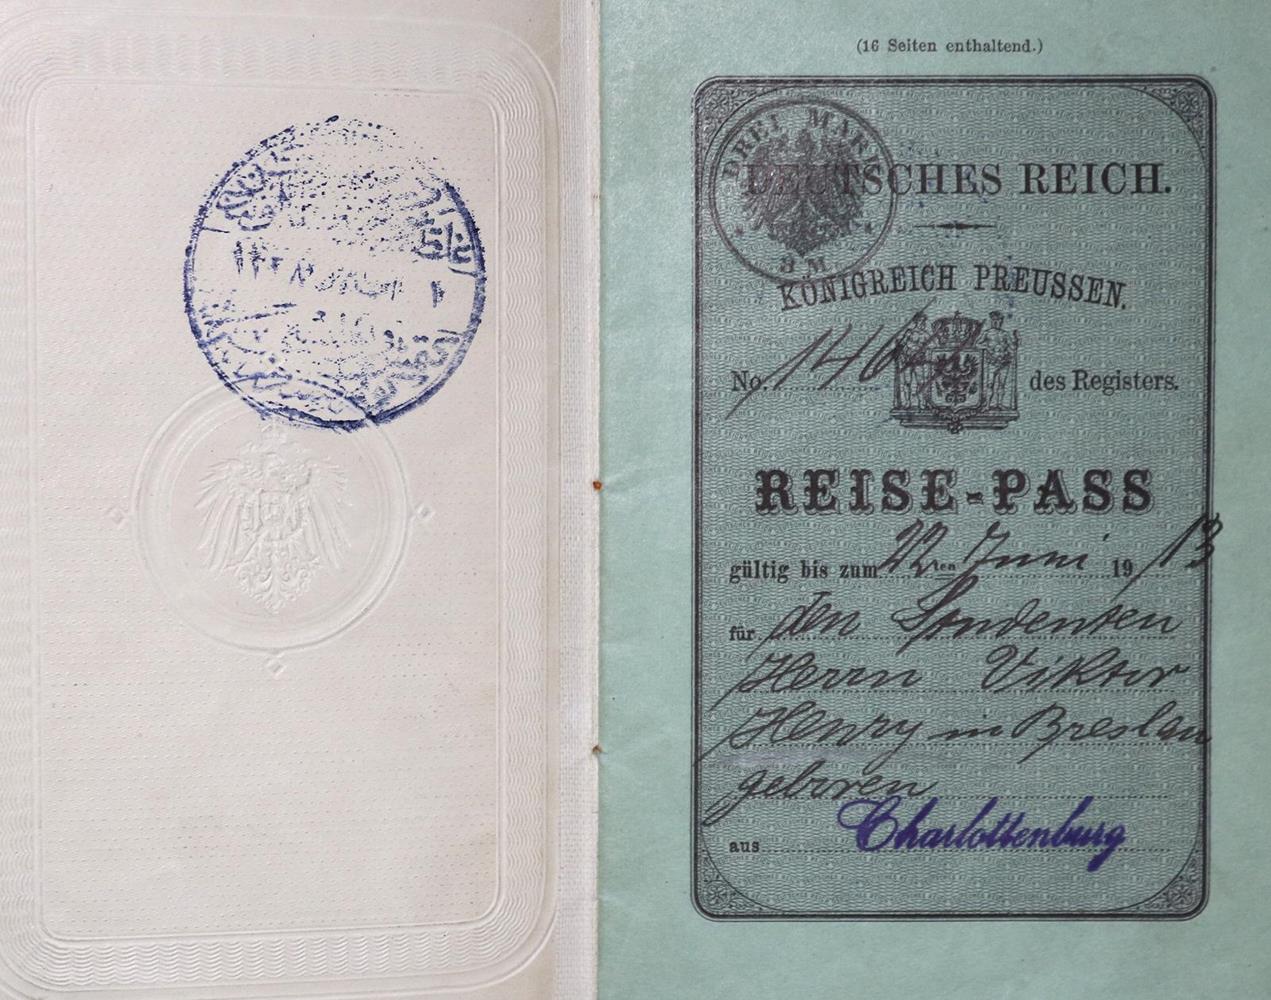 غلطة
١
(16 Seiten enthaltend.)
DREI MARK
3 M
DEUTSCHES REICH.
KÖNIGREICH PREUSSEN.
No. 140 des Registers.
REISE-PASS
gültig bis zum 22ten Juni 1913
für den Studenten
Herrn Viktor
Henry in Breslau
geboren
aus Charlottenburg